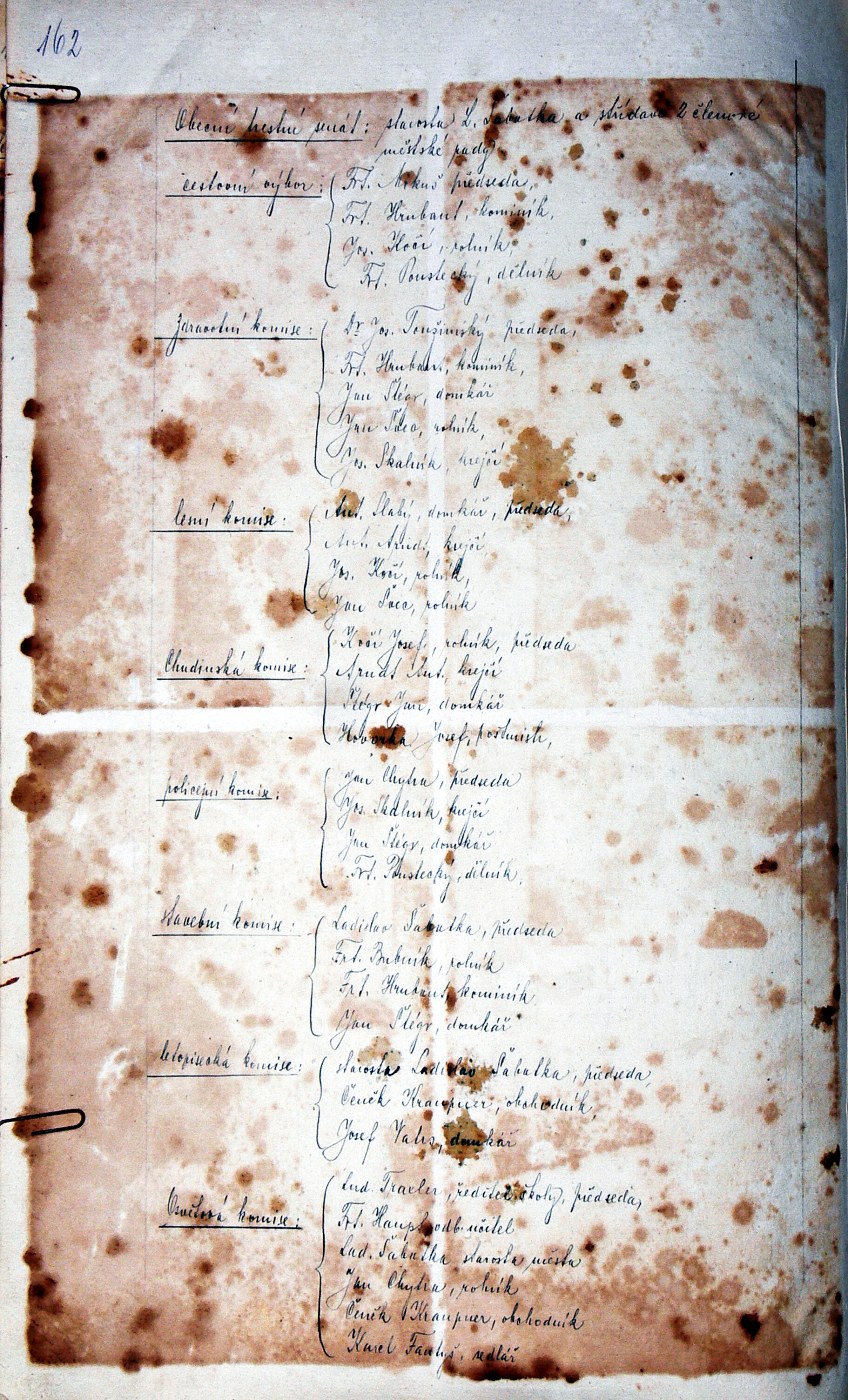 162
Obecní trestní senát: starosta L. Šabatka a střídavě 2 členové
městské rady
cestovní výbor: Frt. Mikuš předseda,
Frt. Hrubant, kominík,
Jos. Kočí, rolník,
Frt. Poustecký, dělník
Zdravotní komise: Dr Jos. Toužimský předseda,
Frt. Hrubant, kominík,
Jan Štégr, domkář
Jan Švec, rolník,
Jos. Skalník, krejčí
lesní komise: Ant. Slabý, domkář, předseda,
Ant. Arndt, krejčí
Jos. Kočí, rolník,
Jan Švec, rolník
Chudinská komise: Kočí Josef, rolník, předseda
Arndt Ant. krejčí
Štégr Jan, domkář
Hovorka Josef, poštmistr,
policejní komise: Jan Chytra, předseda
Jos. Skalník, krejčí
Jan Štégr, domkář
Frt. Poustecký, dělník,
stavební komise: Ladislav Šabatka, předseda
Frt. Bubník, rolník
Frt. Hrubant, kominík
Jan Štégr, domkář
letopisecká komise: starosta Ladislav Šabatka, předseda,
Čeněk Kraupner, obchodník,
Josef domkář
Osvětová komise: Lud. Traxler, ředitel školy, předseda,
Frt. Haupt odb. učitel
Lad. Šabatka starosta města
Jan Chytra, rolník
Čeněk Kraupner, obchodník
Karel sedlář